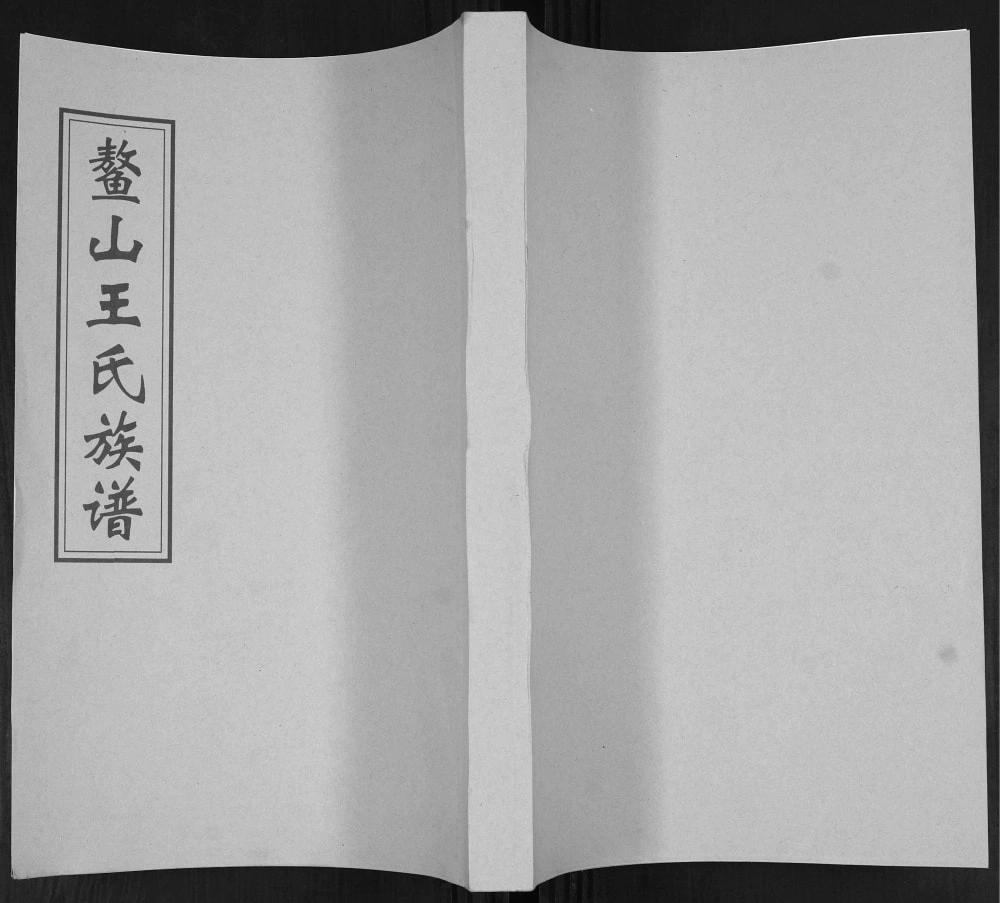 鳌山王氏族谱